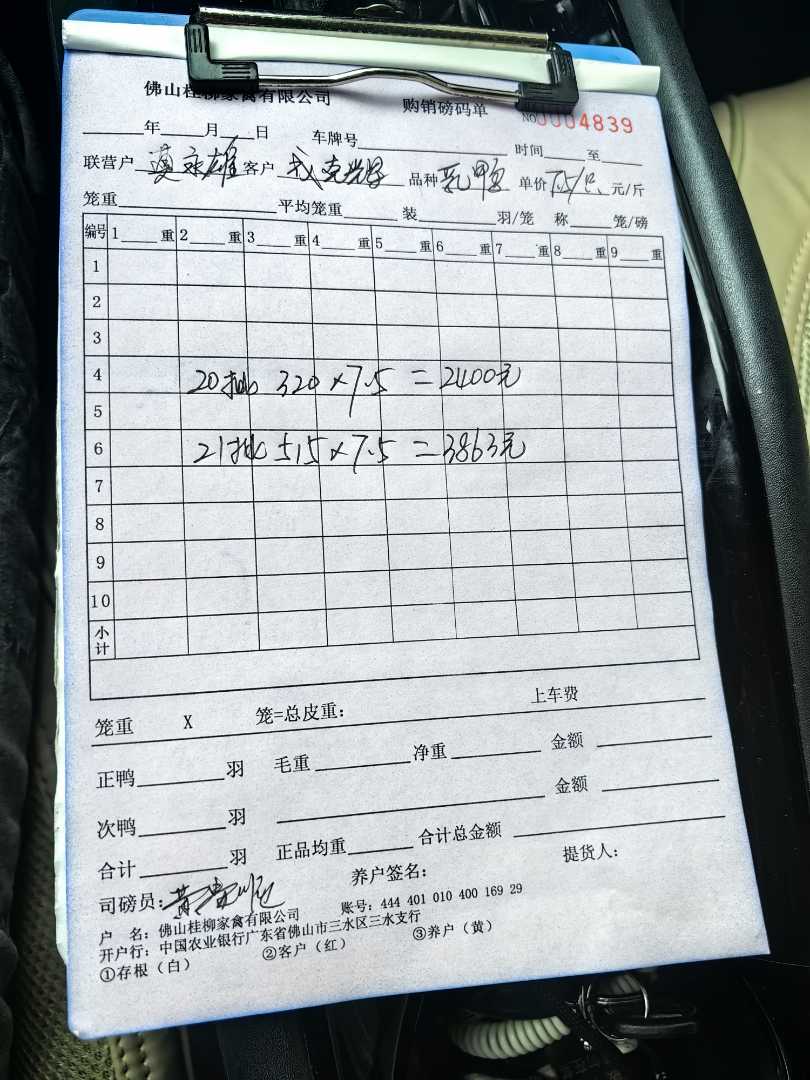 佛山桂柳家禽有限公司 购销磅码单 NO 0004839
年 月 日 车牌号 时间 至
联营户 莫永雄 客户 品种 乳鸭 单价 7.5/只 元/斤
笼重 平均笼重 装 羽/笼 称 笼/磅
编号 1 重 2 重 3 重 4 重 5 重 6 重 7 重 8 重 9 重
1
2
3
4 20批 320×7.5=2400元
5
6 21批 515×7.5=3863元
7
8
9
10
小计
笼重 X 笼=总皮重: 上车费
正鸭 羽 毛重 净重 金额
次鸭 羽 金额
合计 羽 正品均重 合计总金额
司磅员: 养户签名: 提货人:
户 名: 佛山桂柳家禽有限公司 账号: 444 401 010 400 169 29
开户行: 中国农业银行广东省佛山市三水区三水支行
①存根(白) ②客户(红) ③养户(黄)